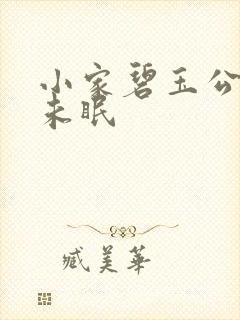 小家碧玉公
未眠
臧美華